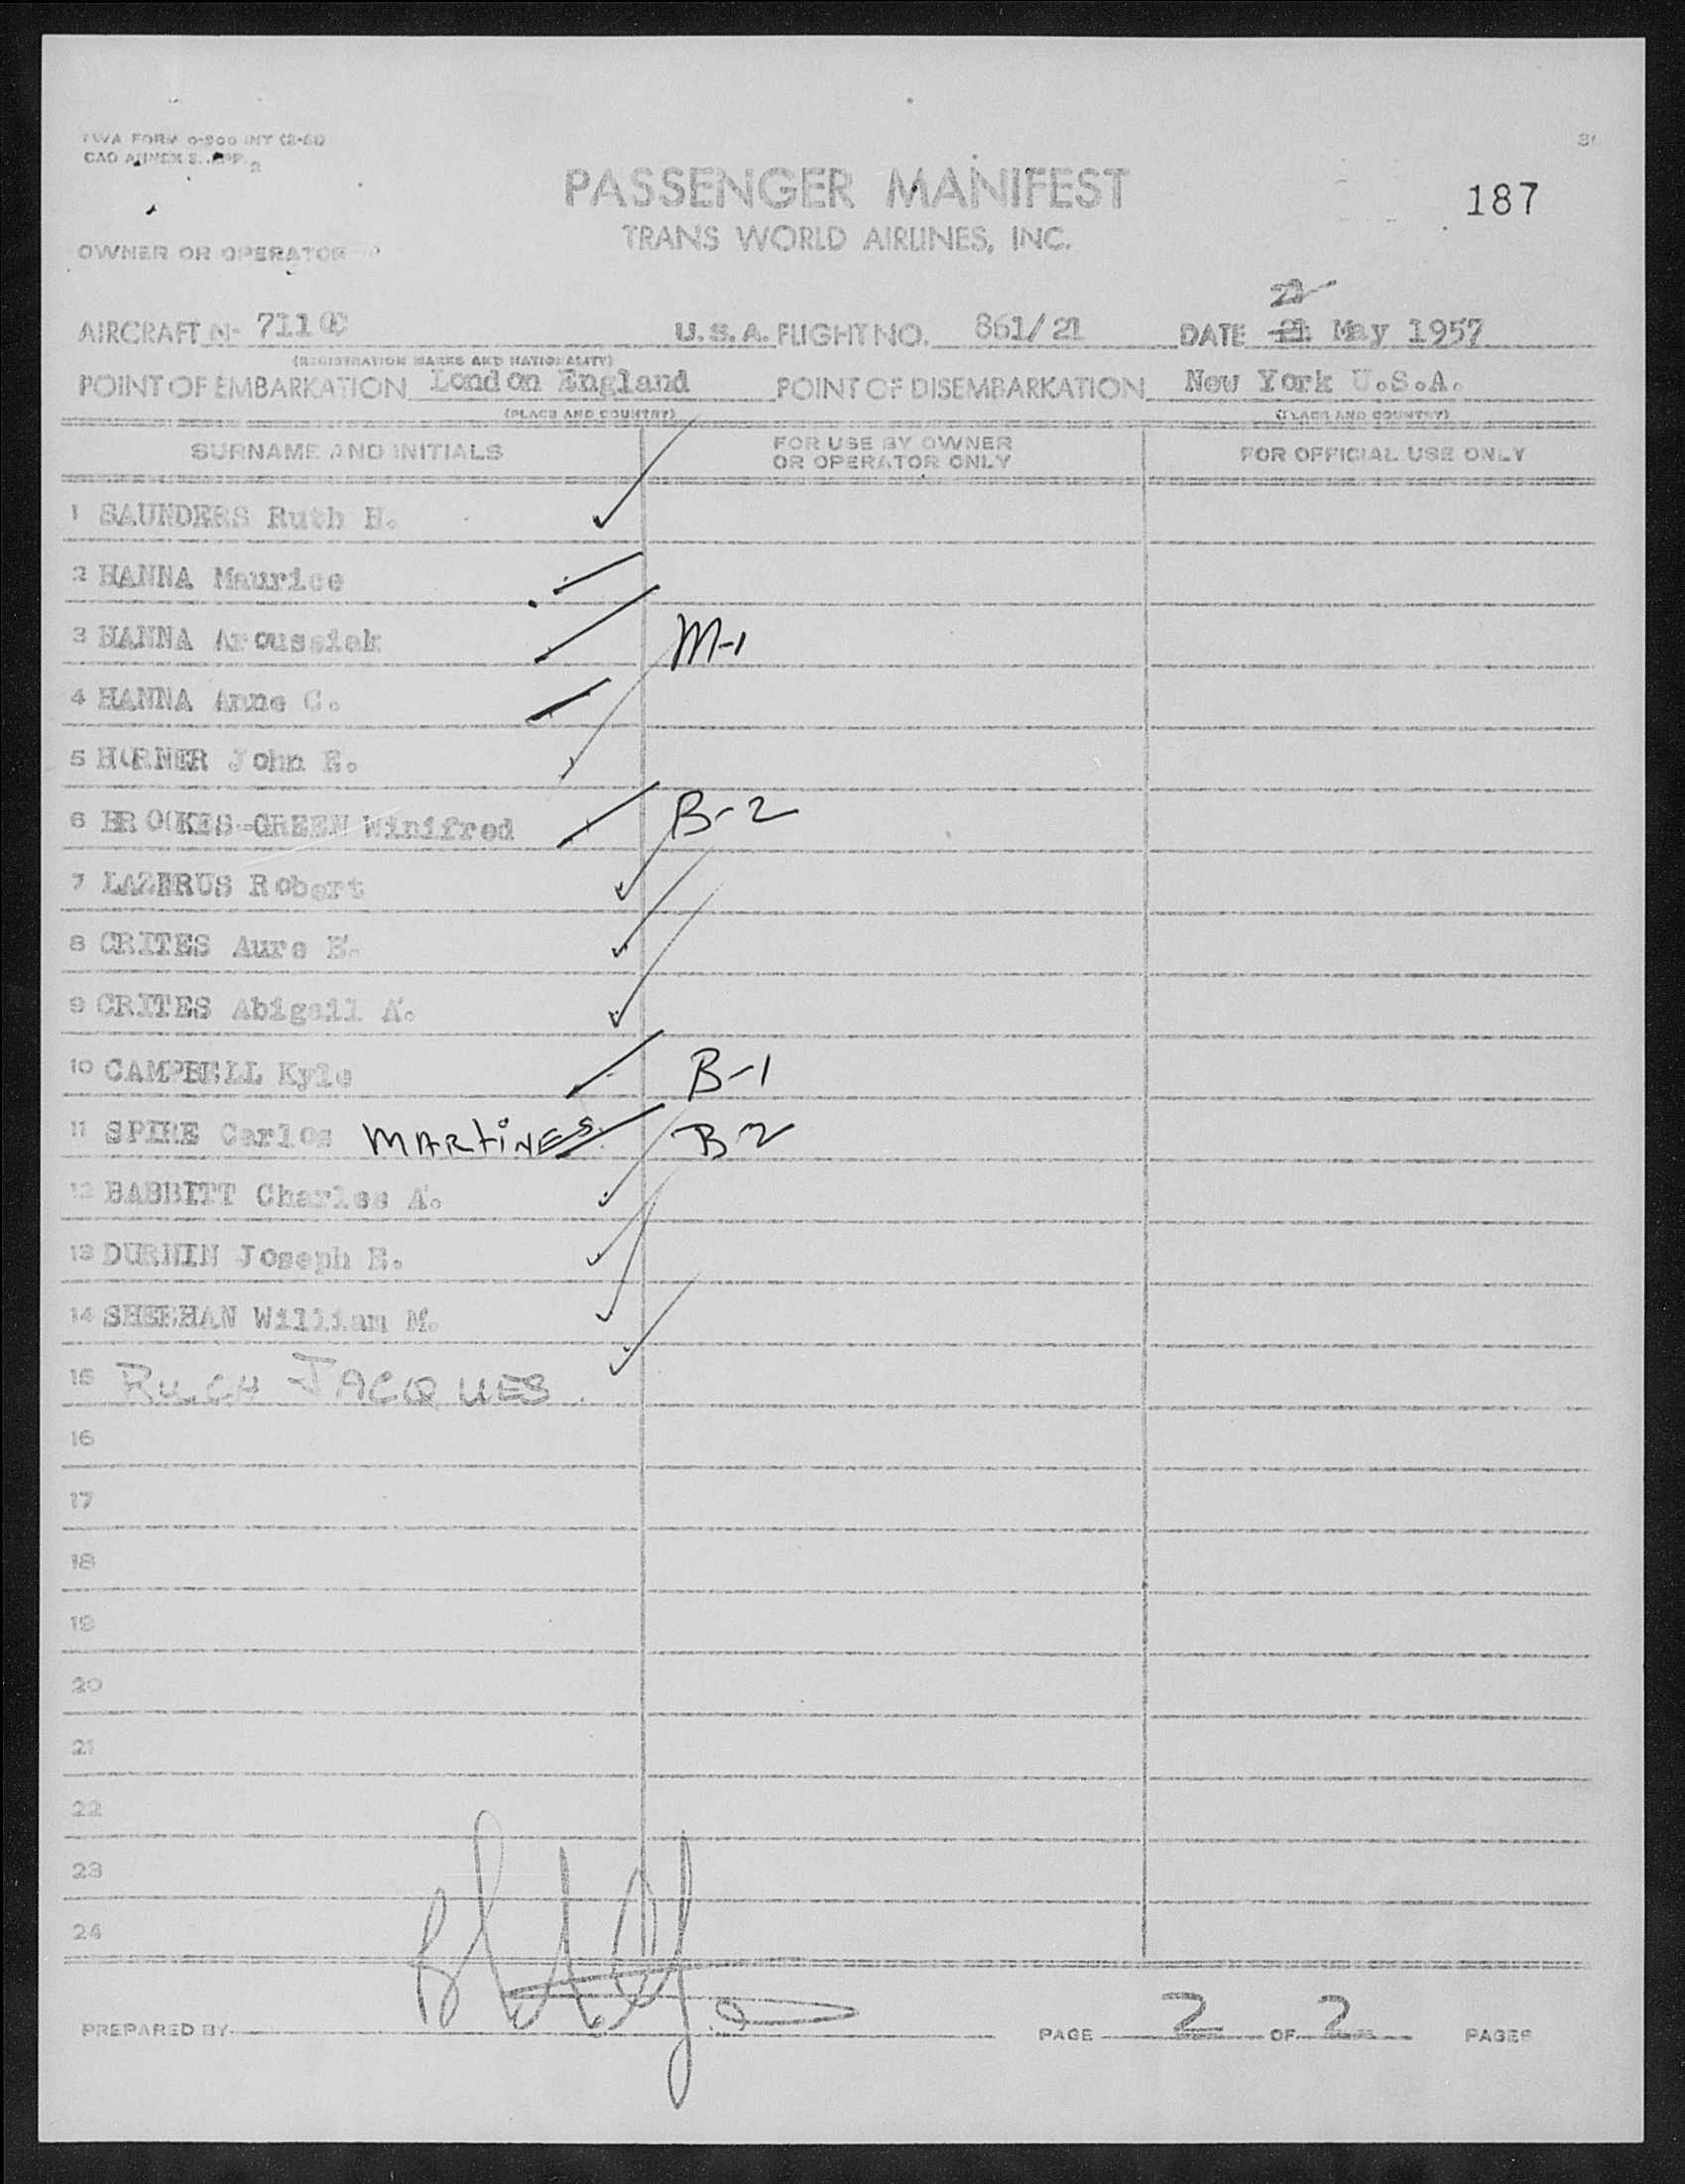 TWA FORM 0-900 INT (2-51)
PASSENGER MANIFEST
187
TRANS WORLD AIRLINES, INC.
OWNER OR OPERATOR
AIRCRAFT N- 7110C U.S.A. FLIGHT NO. 861/21 DATE 21 May 1957
(REGISTRATION MARKS AND NATIONALITY)
POINT OF EMBARKATION London England POINT OF DISEMBARKATION New York U.S.A.
(PLACE AND COUNTRY) (PLACE AND COUNTRY)
SURNAME AND INITIALS FOR USE BY OWNER OR OPERATOR ONLY FOR OFFICIAL USE ONLY
1 SAUNDERS Ruth H.
2 HANNA Maurice
3 HANNA Aroussiak M-1
4 HANNA Anne C.
5 HORNER John E.
6 BROOKES-GREEN Winifred B-2
7 LAZERUS Robert
8 CRITES Aure E.
9 CRITES Abigail A.
10 CAMPBELL Kyle B-1
11 SPIRE Carlos MARTINES B2
12 BABBITT Charles A.
13 DURNIN Joseph E.
14 SHEEHAN William M.
15 RUCH JACQUES
16
17
18
19
20
21
22
23
24
PREPARED BY PAGE 2 OF 2 PAGES